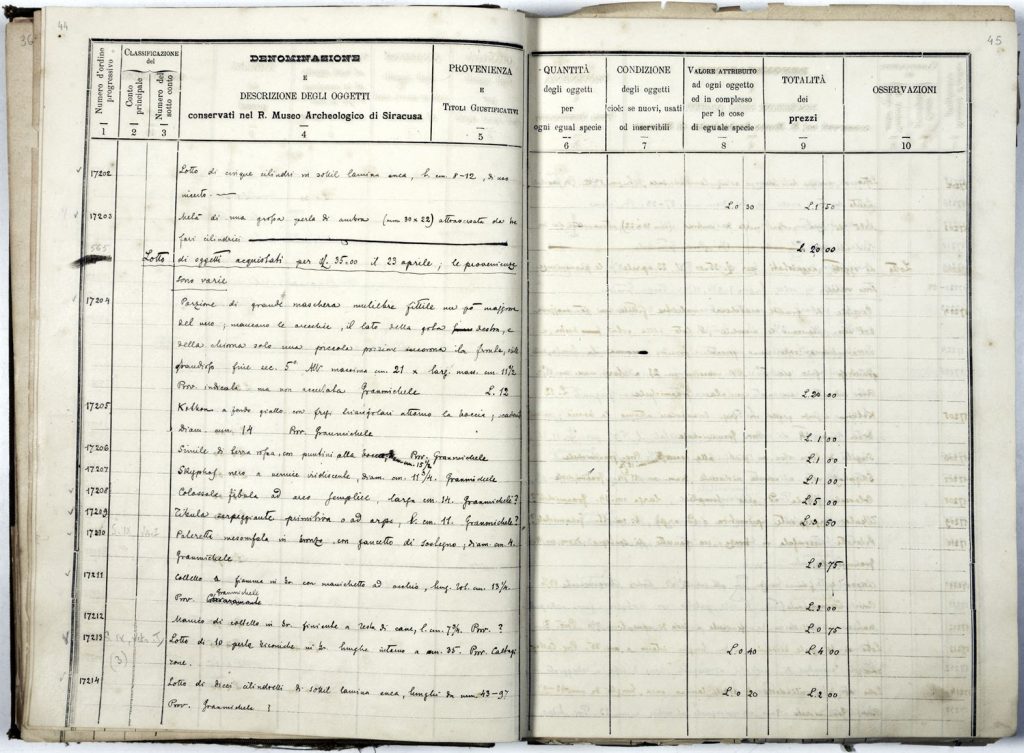 36
44
45
Numero d'ordine progressivo
CLASSIFICAZIONE del
Conto principale
Numero del sotto conto
DENOMINAZIONE
E
DESCRIZIONE DEGLI OGGETTI
conservati nel R. Museo Archeologico di Siracusa
PROVENIENZA
E
TITOLI GIUSTIFICATIVI
QUANTITÀ
degli oggetti
per
ogni egual specie
CONDIZIONE
degli oggetti
cioè: se nuovi, usati
od inservibili
VALORE ATTRIBUITO
ad ogni oggetto
ed in complesso
per le cose
di eguale specie
TOTALITÀ
dei
prezzi
OSSERVAZIONI
1 2 3 4 5 6 7 8 9 10
17202 Lotto di cinque cilindri in sottil lamina enea, l. cm. 8-12, di uso
incerto. L. 0 30 L. 1 50
17203 Metà di una grossa perla di ambra (mm 30 x 22) attraversata da tre
fori cilindrici L. 20 00
565
Lotto di oggetti acquistati per £. 35.00 il 23 aprile; le provenienze
sono varie
17204 Porzione di grande maschera muliebre fittile un pò maggiore
del vero; mancano le orecchie, il lato della gola destra, e
della chioma solo una piccola porzione la fronte, stile
grandioso fine sec. 5° Alt. massima cm. 21 x larg. mass. cm. 11 1/2
Prov. indicata ma non accertata Granmichele L. 12 L. 20 00
17205 Kothon a fondo giallo con fregi triangolari attorno la bocca;
Diam. cm. 14 Prov. Granmichele L. 1 00
17206 Simile di terra rossa, con puntini alla bocca, Diam. cm. 15 1/2 Prov. Granmichele L. 1 00
17207 Skyphos nero a vernice iridiscente, diam. cm. 11 3/4. Granmichele L. 1 00
17208 Colossale fibula ad arco semplice, larga cm. 14. Granmichele? L. 5 00
17209 Fibula serpeggiante primitiva o ad arpa, l. cm. 11. Granmichele? L. 3 50
17210 Paleretta mesomfala in bronzo con gancetto di sostegno; diam. cm. 4.
Granmichele L. 0 75
17211 Coltello a fiamma in br. con manichetto ad occhio, lung. tot. cm. 13 1/4.
Prov. Granmichele L. 2 00
17212 Manico di coltello in br. finiente a testa di cane, l. cm. 7 3/4. Prov. ? L. 0 75
17213 Lotto di 10 perle biconiche in br. lunghe intorno a mm. 35. Prov. Caltagi
rone. L. 0 40 L. 4 00
(3)
17214 Lotto di dieci cilindretti di sottil lamina enea, lunghi da mm. 43-97.
Prov. Granmichele ? L. 0 20 L. 2 00